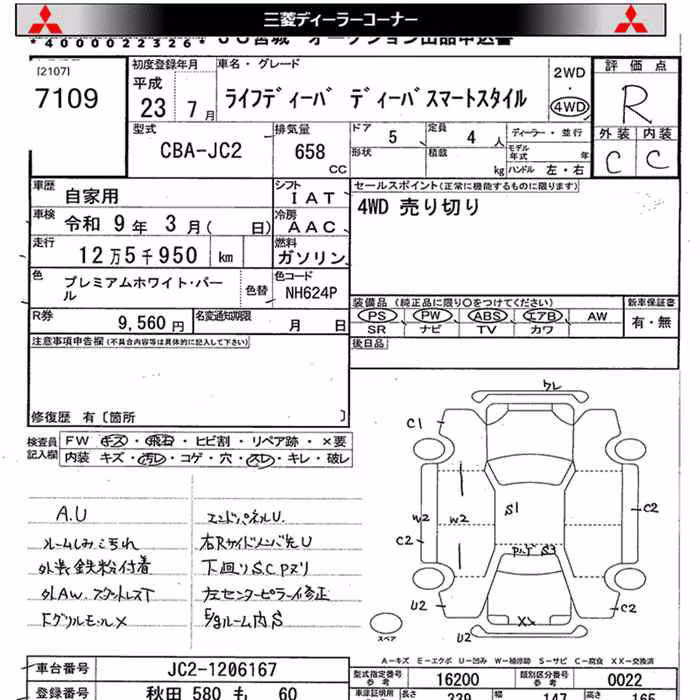 三菱ディーラーコーナー
*4000022326* JU宮城 オークション出品申込書
[2107]
7109
初度登録年月
平成
23 7月
車名・グレード
ライフディーバ ディーバスマートスタイル
2WD
・
4WD
評価点
R
外装 内装
C C
型式
CBA-JC2
排気量
658
CC
ドア 5
定員 4 人
ディーラー・並行
形状
積載 kg
モデル年式 年
ハンドル 左・右
車歴
自家用
シフト
IAT
セールスポイント(正常に機能するものに限ります)
4WD 売り切り
車検
令和 9年 3月( 日)
冷房
AAC
走行
12万5千950 km
燃料
ガソリン
色
プレミアムホワイト・パール
色替
色コード
NH624P
装備品 (純正品に限り○をつけてください)
新車保証書
PS PW ABS エアB AW
有・無
SR ナビ TV カワ
R券
9,560円
名変通知期限
月 日
後日品
注意事項申告欄(不具合内容等は具体的に記入して下さい)
修復歴 有〔箇所 〕
検査員記入欄
FW キズ・飛石・ヒビ割・リペア跡・×要
内装 キズ・汚レ・コゲ・穴・スレ・キレ・破レ
A.U
ルームしみこれ
外装鉄粉付着
外AW.スタットレスT
Fグリルモール×
エンドパネルU.
右RサイドメンバU
下廻りS.C Pヌリ
左センターピラーイ修正
E/gルーム内S
ワレ
C1
W2
W2
C2
S1
C2
U2
C2
XX
U2
スペア
A-キズ E-エクボ U-凹み W-補修跡 S-サビ C-腐食 XX-交換済
車台番号
JC2-1206167
型式指定番号 参考
16200
類別区分番号 参考
0022
登録番号
秋田 580 も 60
車庫証明用 参考
長さ 339
幅 147
高さ 165